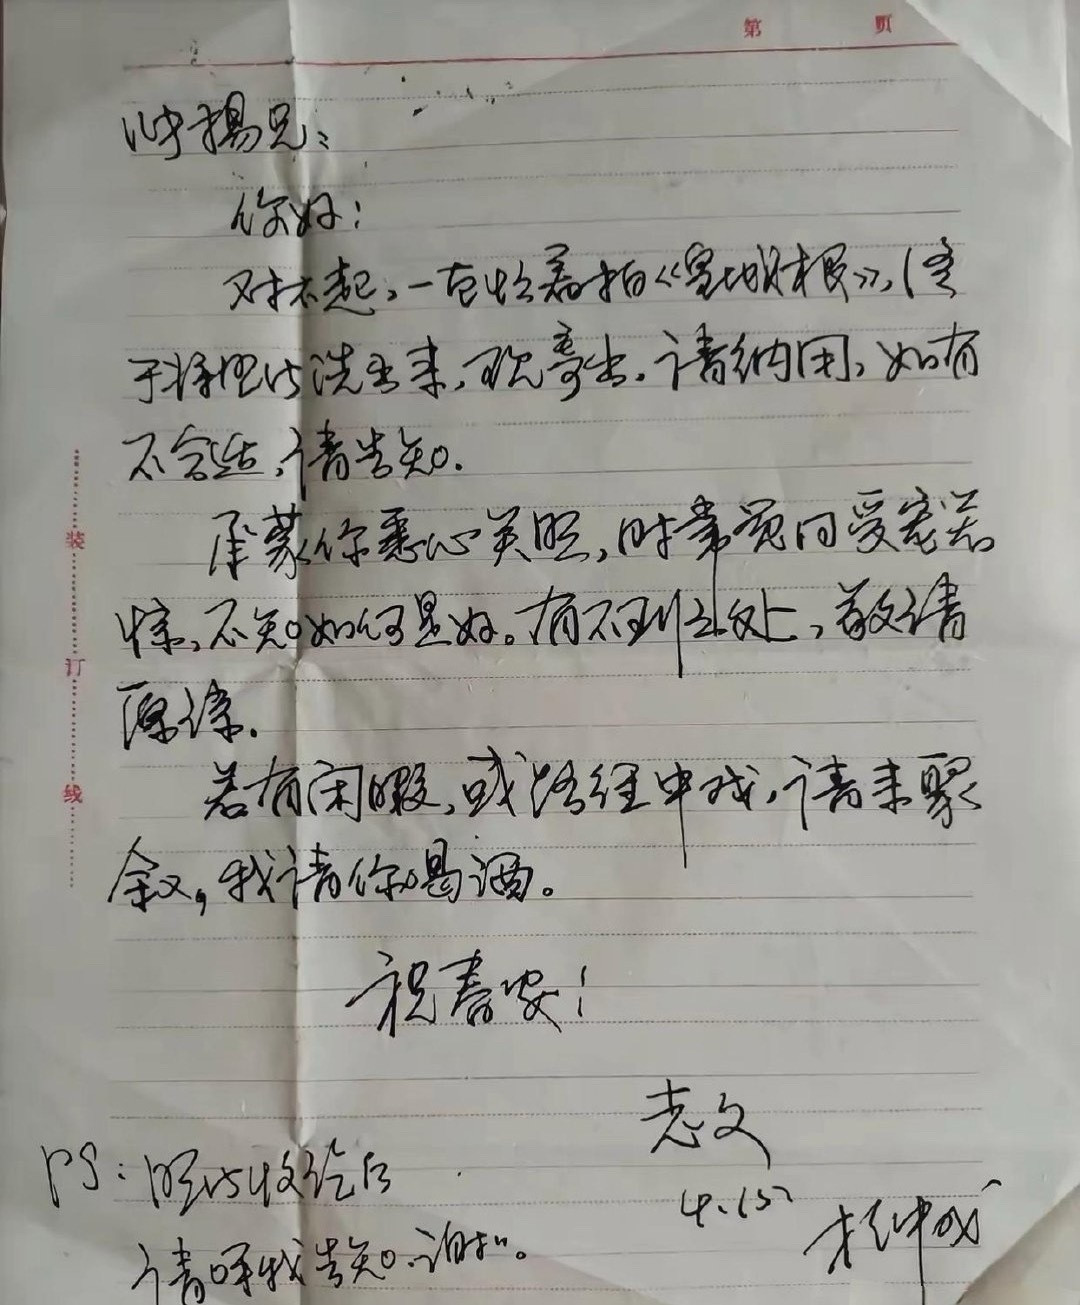 第 页
仲揚兄:
你好!
对不起,一直忙着拍《皇城根》,
于将照片洗出来,现寄出。请纳用,如有
不合适,请告知。
承蒙你悉心关照,时常觉得受宠若
惊,不知如何是好。有不到之处,敬请
原谅。
若有闲暇,或路经中戏,请来聚
叙,我请你喝酒。
祝春安!
志文
4.15
PS:照片收讫后
请呼我告知.谢谢。
装 订 线